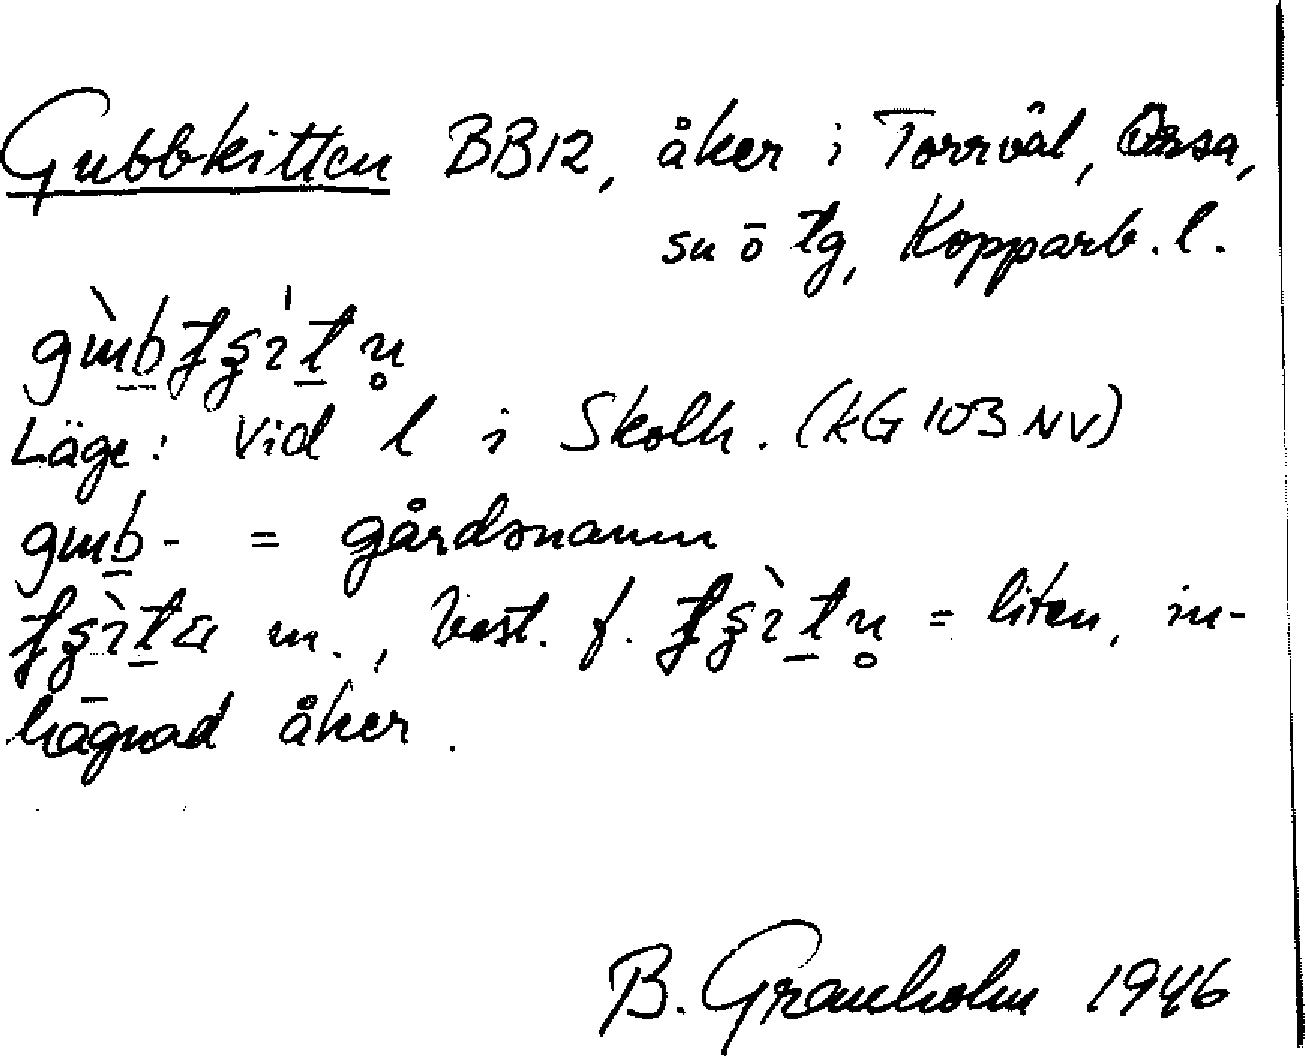 Gubbkitten BB12, åker i Torrvål, Orsa,
sn ö tg, Kopparb. l.
Läge: Vid l i Skolh. (kG 103 NV)
= gårdsnamn
m., best. f. = liten, in-
hägnad åker.
B. Granholm 1946